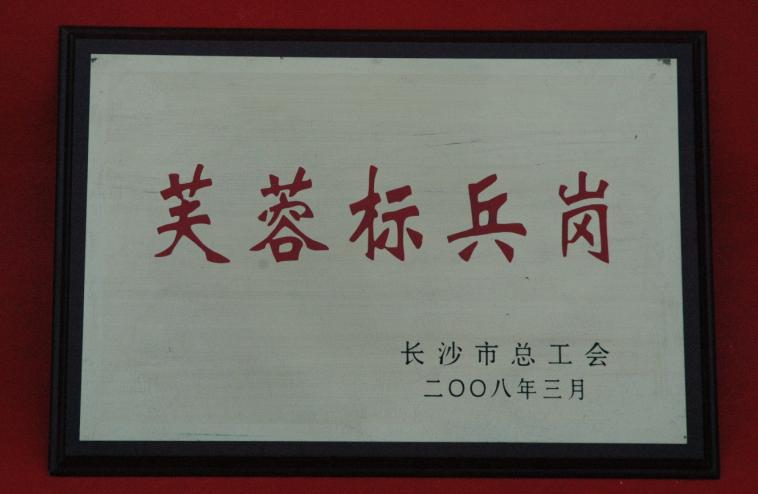 芙蓉标兵岗
长沙市总工会
二〇〇八年三月